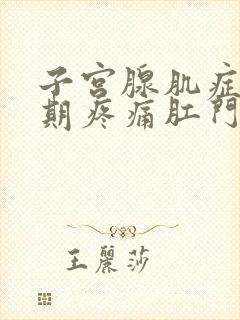 子宮腺肌症
期疼痛肛門
王麗莎